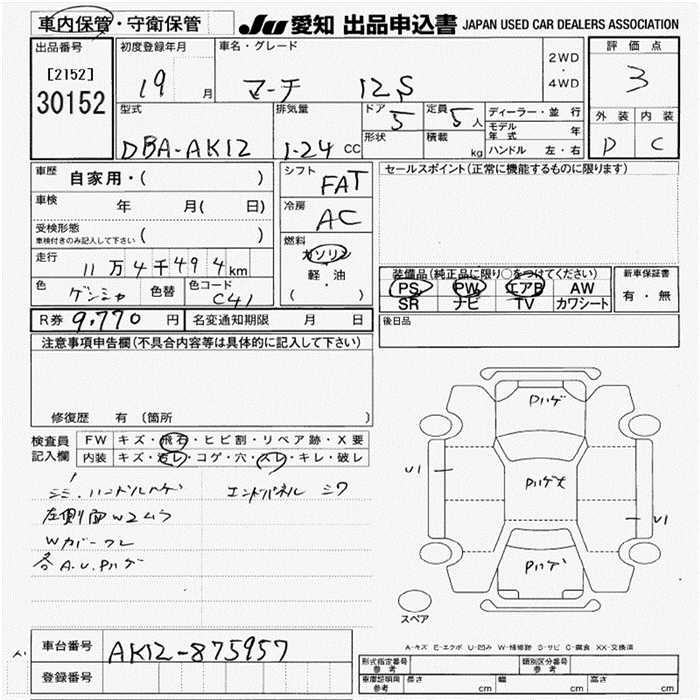 車内保管・守衛保管
JU 愛知 出品申込書 JAPAN USED CAR DEALERS ASSOCIATION
出品番号
[2152]
30152
初度登録年月
19 月
車名・グレード
マーチ 12S
2WD・4WD
評価点
3
外装 内装
D C
型式
DBA-AK12
排気量
1-24 CC
ドア
5
定員
5人
形状
積載 kg
ディーラー・並行
モデル年式 年
ハンドル 左・右
車歴
自家用・( )
車検 年 月( 日)
受検形態
車検付きのみ記入して下さい ( )
走行
11万4千494km
色 ゲンシャ 色替 色コード C41
シフト
FAT
冷房
AC
燃料
ガソリン
軽・油
( )
セールスポイント(正常に機能するものに限ります)
装備品(純正品に限り○をつけてください)
PS PW エアB AW
SR ナビ TV カワシート
新車保証書
有・無
R券 9,770 円 名変通知期限 月 日
後日品
注意事項申告欄(不具合内容等は具体的に記入して下さい)
修復歴 有 (箇所 )
検査員記入欄
FW キズ・飛石・ヒビ割・リペア跡・X要
内装 キズ・汚レ・コゲ・穴・スレ・キレ・破レ
シミ ハンドルハゲ エンドパネル シワ
左側面W2ムラ
Wカバーワレ
各A.U.Pハゲ
Pハゲ
U1
Pハゲ
U1
Pハゲ
スペア
A-キズ E-エクボ U-凹み W-補修跡 S-サビ C-腐食 XX-交換済
車台番号 AK12-875957
登録番号
形式指定番号 参考
類別区分番号 参考
車庫証明用 参考 長さ cm 幅 cm 高さ cm